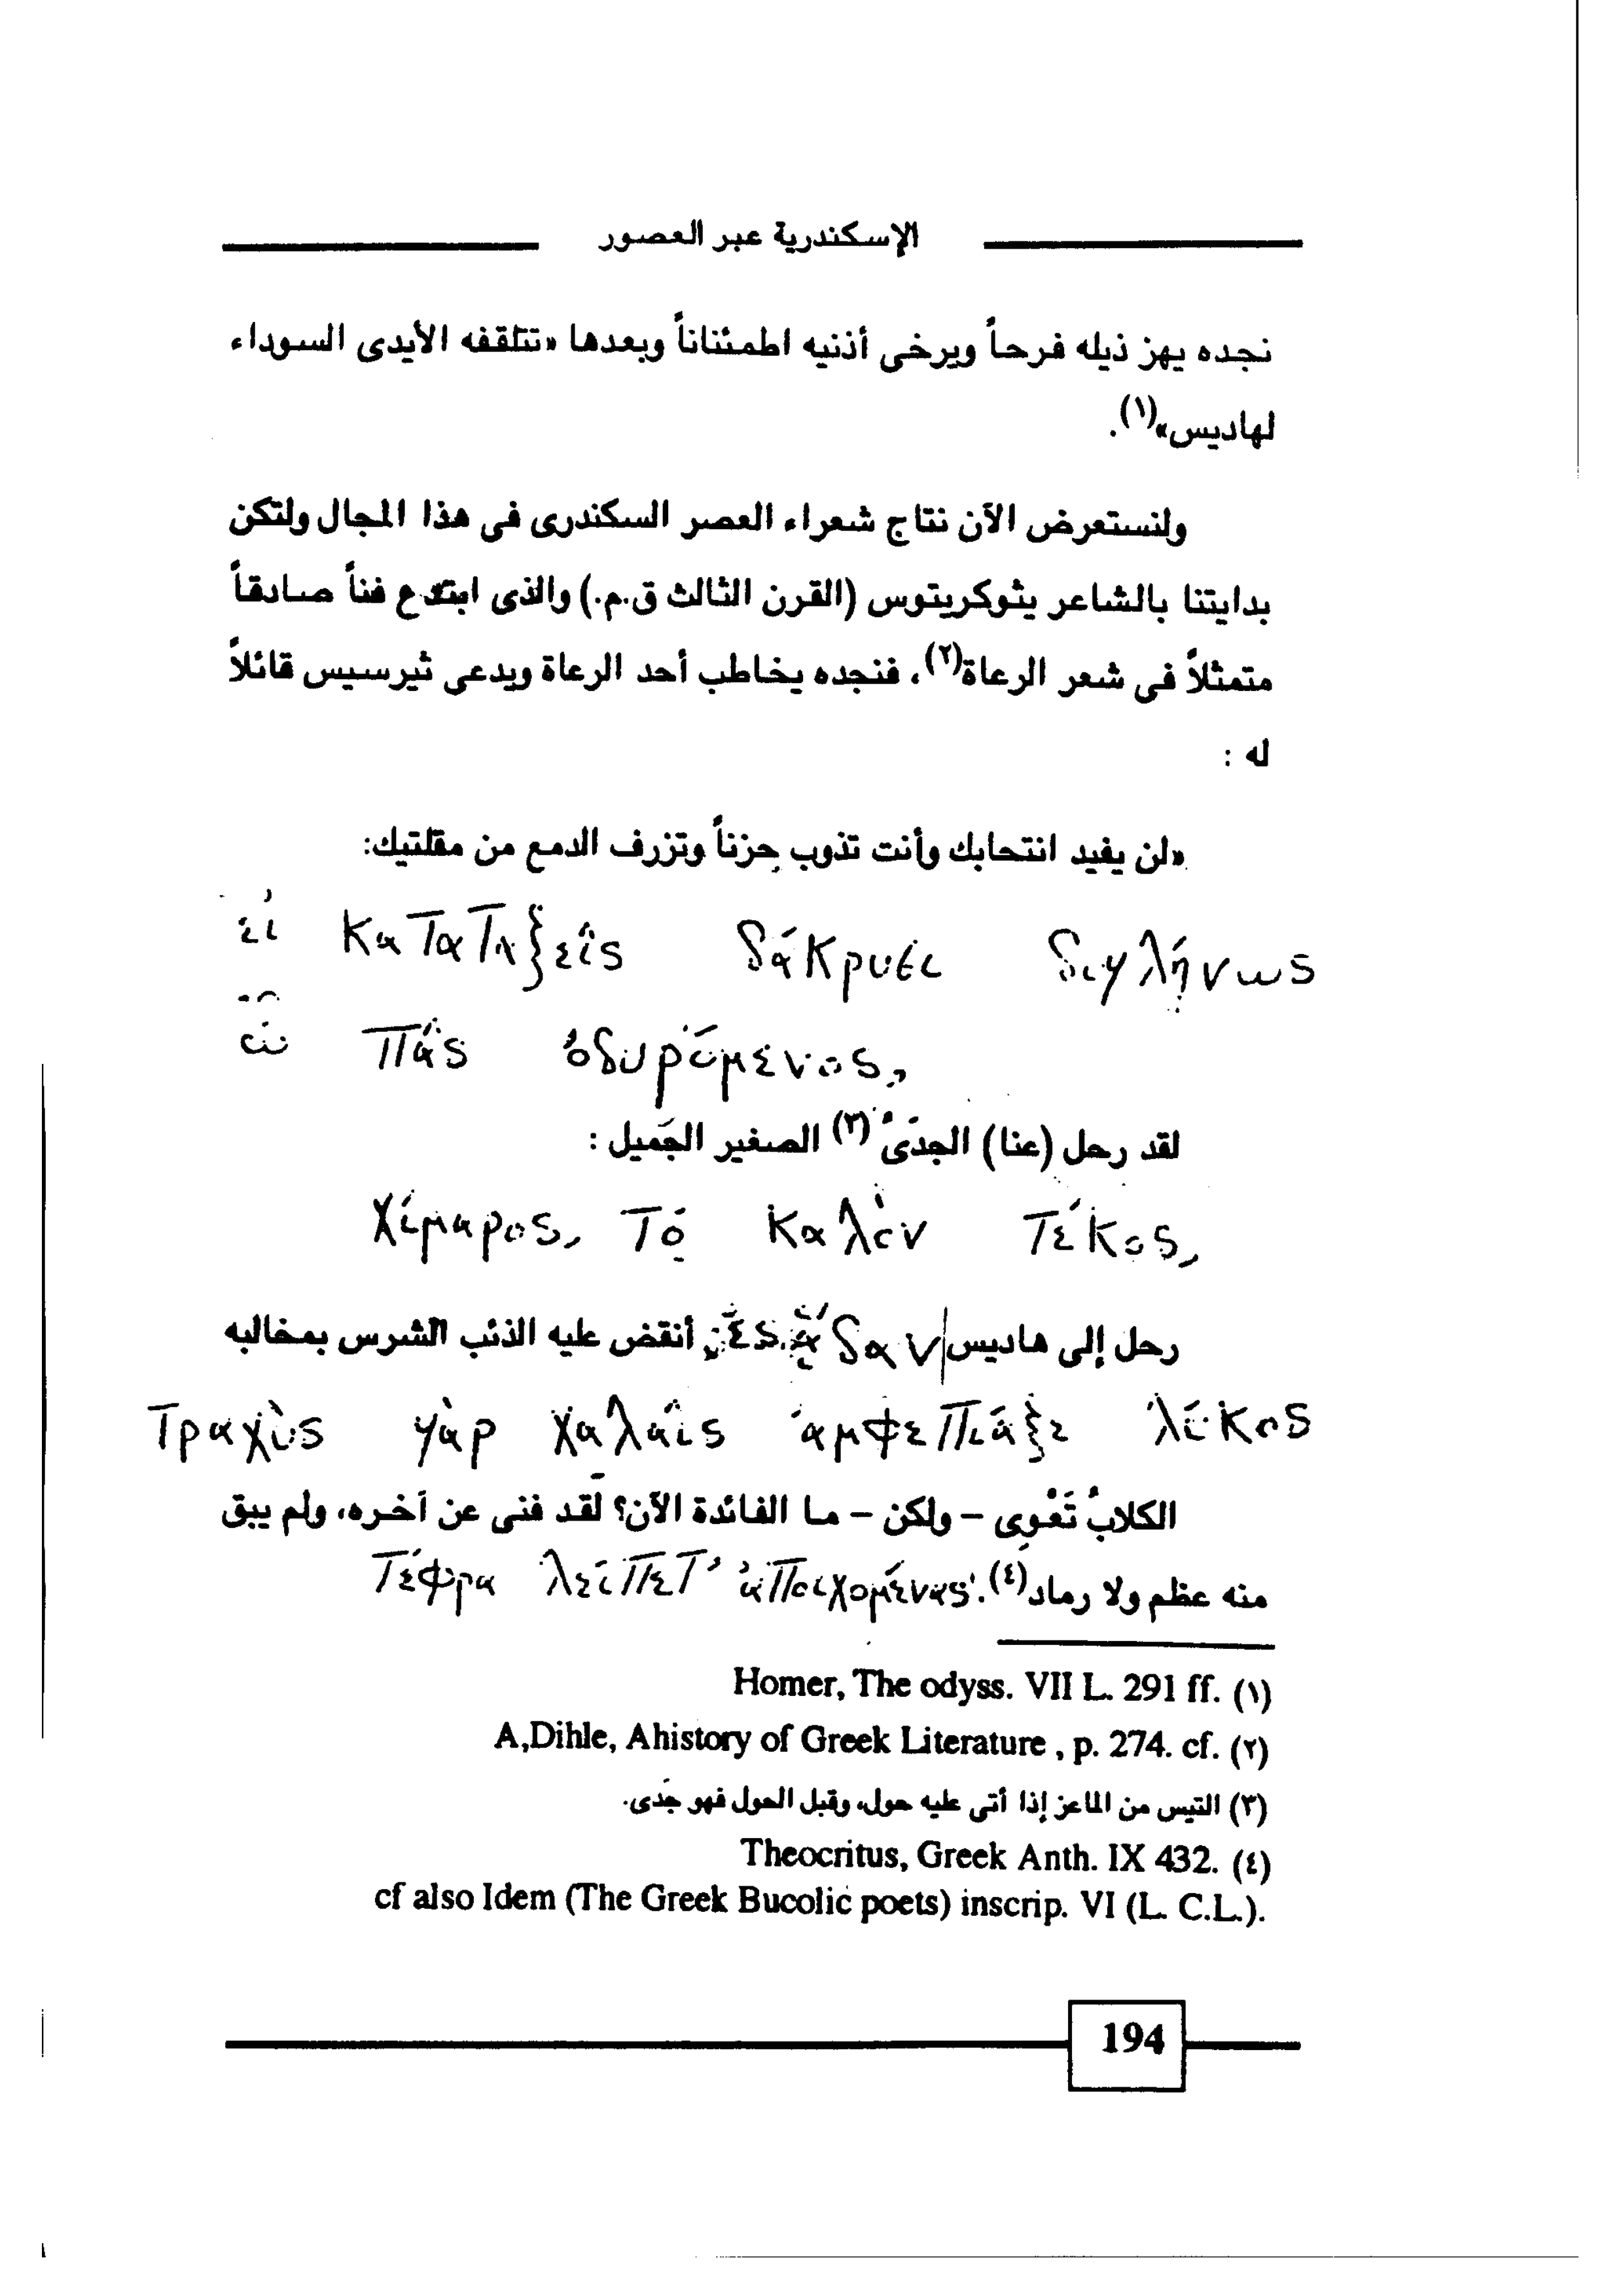 الإسكندرية عبر العصور
نجده يهز ذيله فرحاً ويرخى أذنيه اطمئناناً وبعدها «تتلقفه الأيدى السوداء
لهاديس»(١).
ولنستعرض الآن نتاج شعراء العصر السكندرى فى هذا المجال ولتكن
بدايتنا بالشاعر يثوكريتوس (القرن الثالث ق.م.) والذى ابتدع فناً صادقاً
متمثلاً فى شعر الرعاة(٢)، فنجده يخاطب أحد الرعاة ويدعى ثيرسيس قائلاً
له :
«لن يفيد انتحابك وأنت تذوب حزناً وتزرف الدمع من مقلتيك:
εἰ καταταξεῖς δάκρυσι διγλήνως
ὦπας ὀδυρόμενος,
لقد رحل (عنا) الجدىُ (٣) الصغير الجميل :
χίμαρος, τὸ καλὸν τέκος,
رحل إلى هاديس ἐς Ἅδαν أنقض عليه الذئب الشرس بمخالبه
τραχὺς γὰρ χαλαῖς ἀμφεπίαξε λύκος
الكلابُ تَعْوِى – ولكن – ما الفائدة الآن؟ لقد فنى عن آخره، ولم يبق
منه عظم ولا رماد(٤). τέφρα λείπετ' ἀποιχομένας.
(١) Homer, The odyss. VII L. 291 ff.
(٢) A,Dihle, Ahistory of Greek Literature , p. 274. cf.
(٣) التيس من الماعز إذا أتى عليه حول، وقبل الحول فهو جَدى.
(٤) Theocritus, Greek Anth. IX 432.
cf also Idem (The Greek Bucolic poets) inscrip. VI (L. C.L.).
194